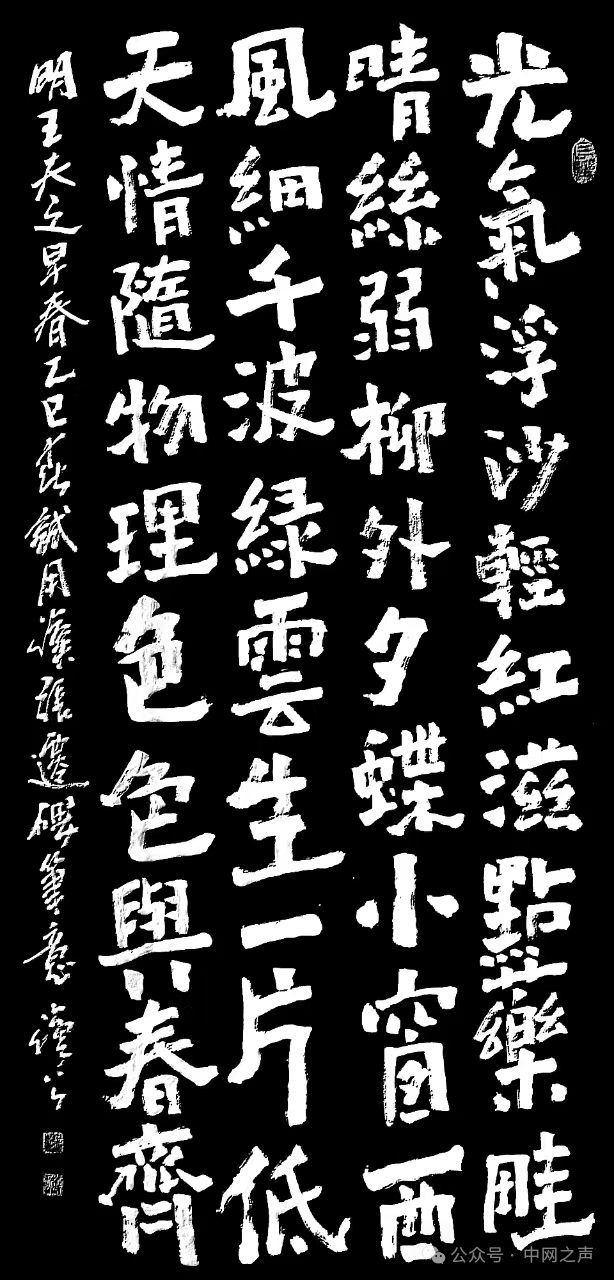 光氣浮沙輕紅滋點藥畦
晴絲弱柳外夕蝶小窗西
風細千波緑雲生一片低
天情隨物理色色與春齊
明王夫之早春乙巳春試用漢張遷碑筆意
公众号·中网之声